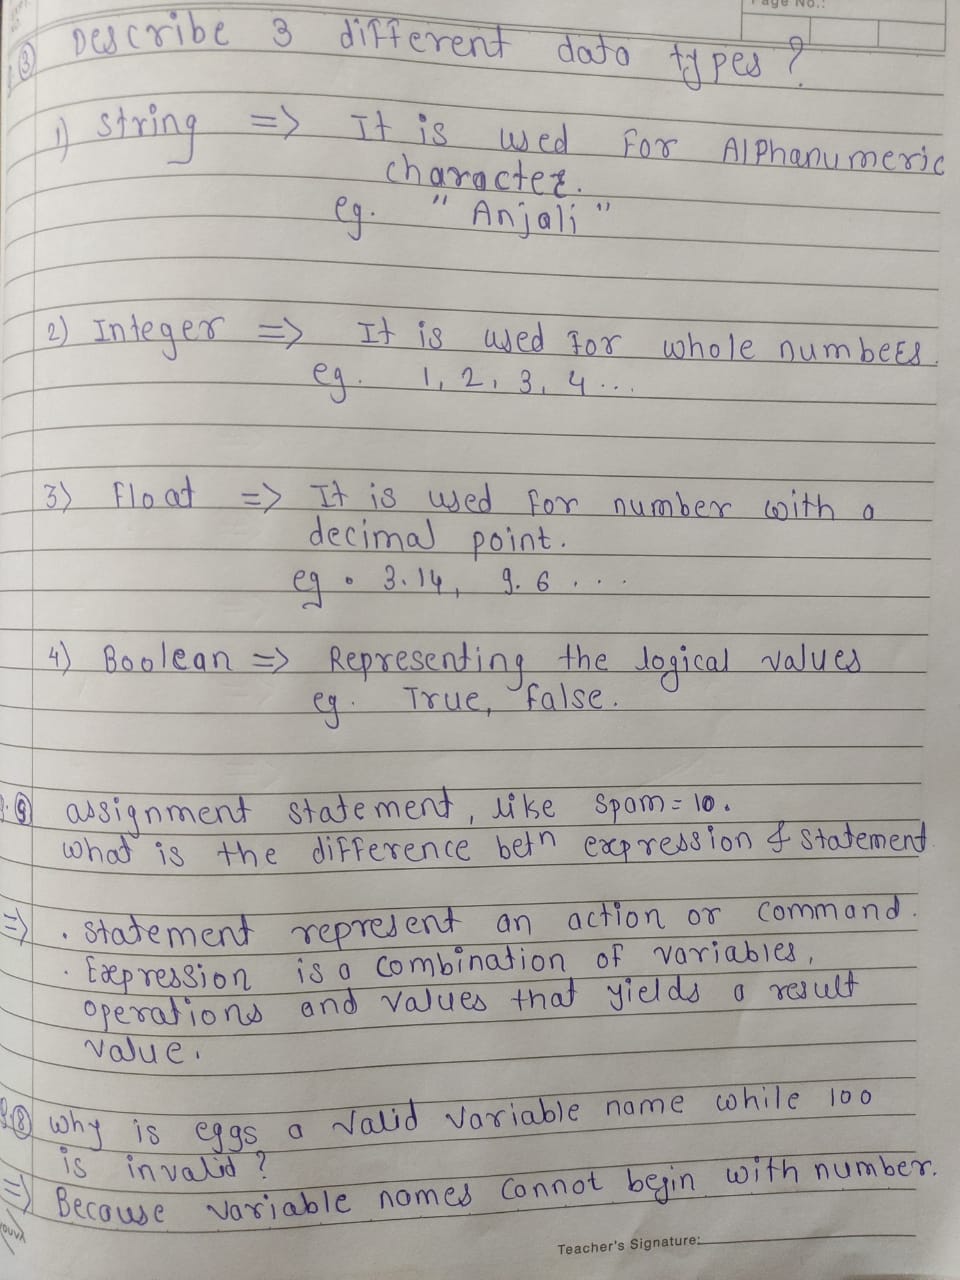 Page No.:
③ Describe 3 different data types?
1) string => It is used for Alphanumeric
character.
eg. "Anjali"
2) Integer => It is used for whole numbers.
eg. 1, 2, 3, 4 ...
3) Float => It is used for number with a
decimal point.
eg. 3.14, 9.6 ...
4) Boolean => Representing the logical values
eg. True, false.
assignment statement, like spam = 10.
what is the difference betn expression & statement
=> . statement represent an action or command.
. Expression is a combination of variables,
operations and values that yields a result
value.
Q.⑧ why is eggs a valid variable name while 100
is invalid?
=> Because variable names cannot begin with number.
Teacher's Signature: